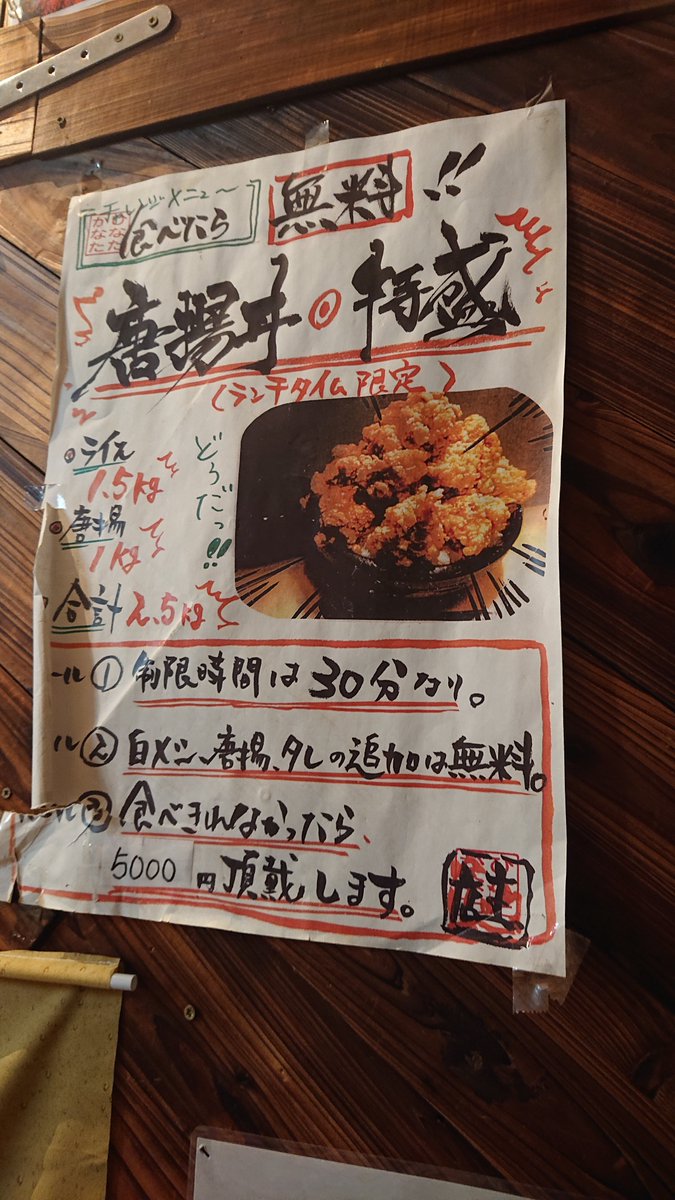 チャレンジメニュー
ひなた
かなた
食べたら
無料!!
唐揚丼◎特盛
(ランチタイム限定)
◎ライス
1.5kg
◎唐揚
1kg
合計2.5kg
どうだっ!!
ール① 制限時間は30分なり。
ル② 白メシ、唐揚、タレの追加は無料。
ル③ 食べきれなかったら、
5000円頂戴します。
店主